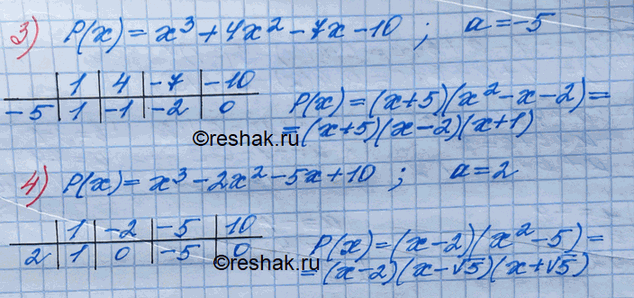 3) P(x) = x³ + 4x² - 7x - 10 ; a = -5
1 4 -7 -10
-5 1 -1 -2 0
P(x) = (x+5)(x² - x - 2) =
= (x+5)(x-2)(x+1)
©reshak.ru
4) P(x) = x³ - 2x² - 5x + 10 ; a = 2
1 -2 -5 10
2 1 0 -5 0
P(x) = (x-2)(x² - 5) =
= (x-2)(x-√5)(x+√5)
©reshak.ru